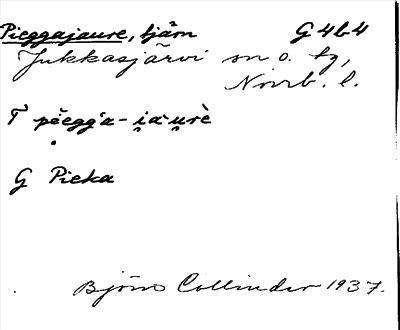 Pieggajaure, tjärn G 4b4
Jukkasjärvi sn o. tg,
Norrb. l.
T pĕegg'a- i̯a'u̯rè
G Pieka
Björn Collinder 1937.